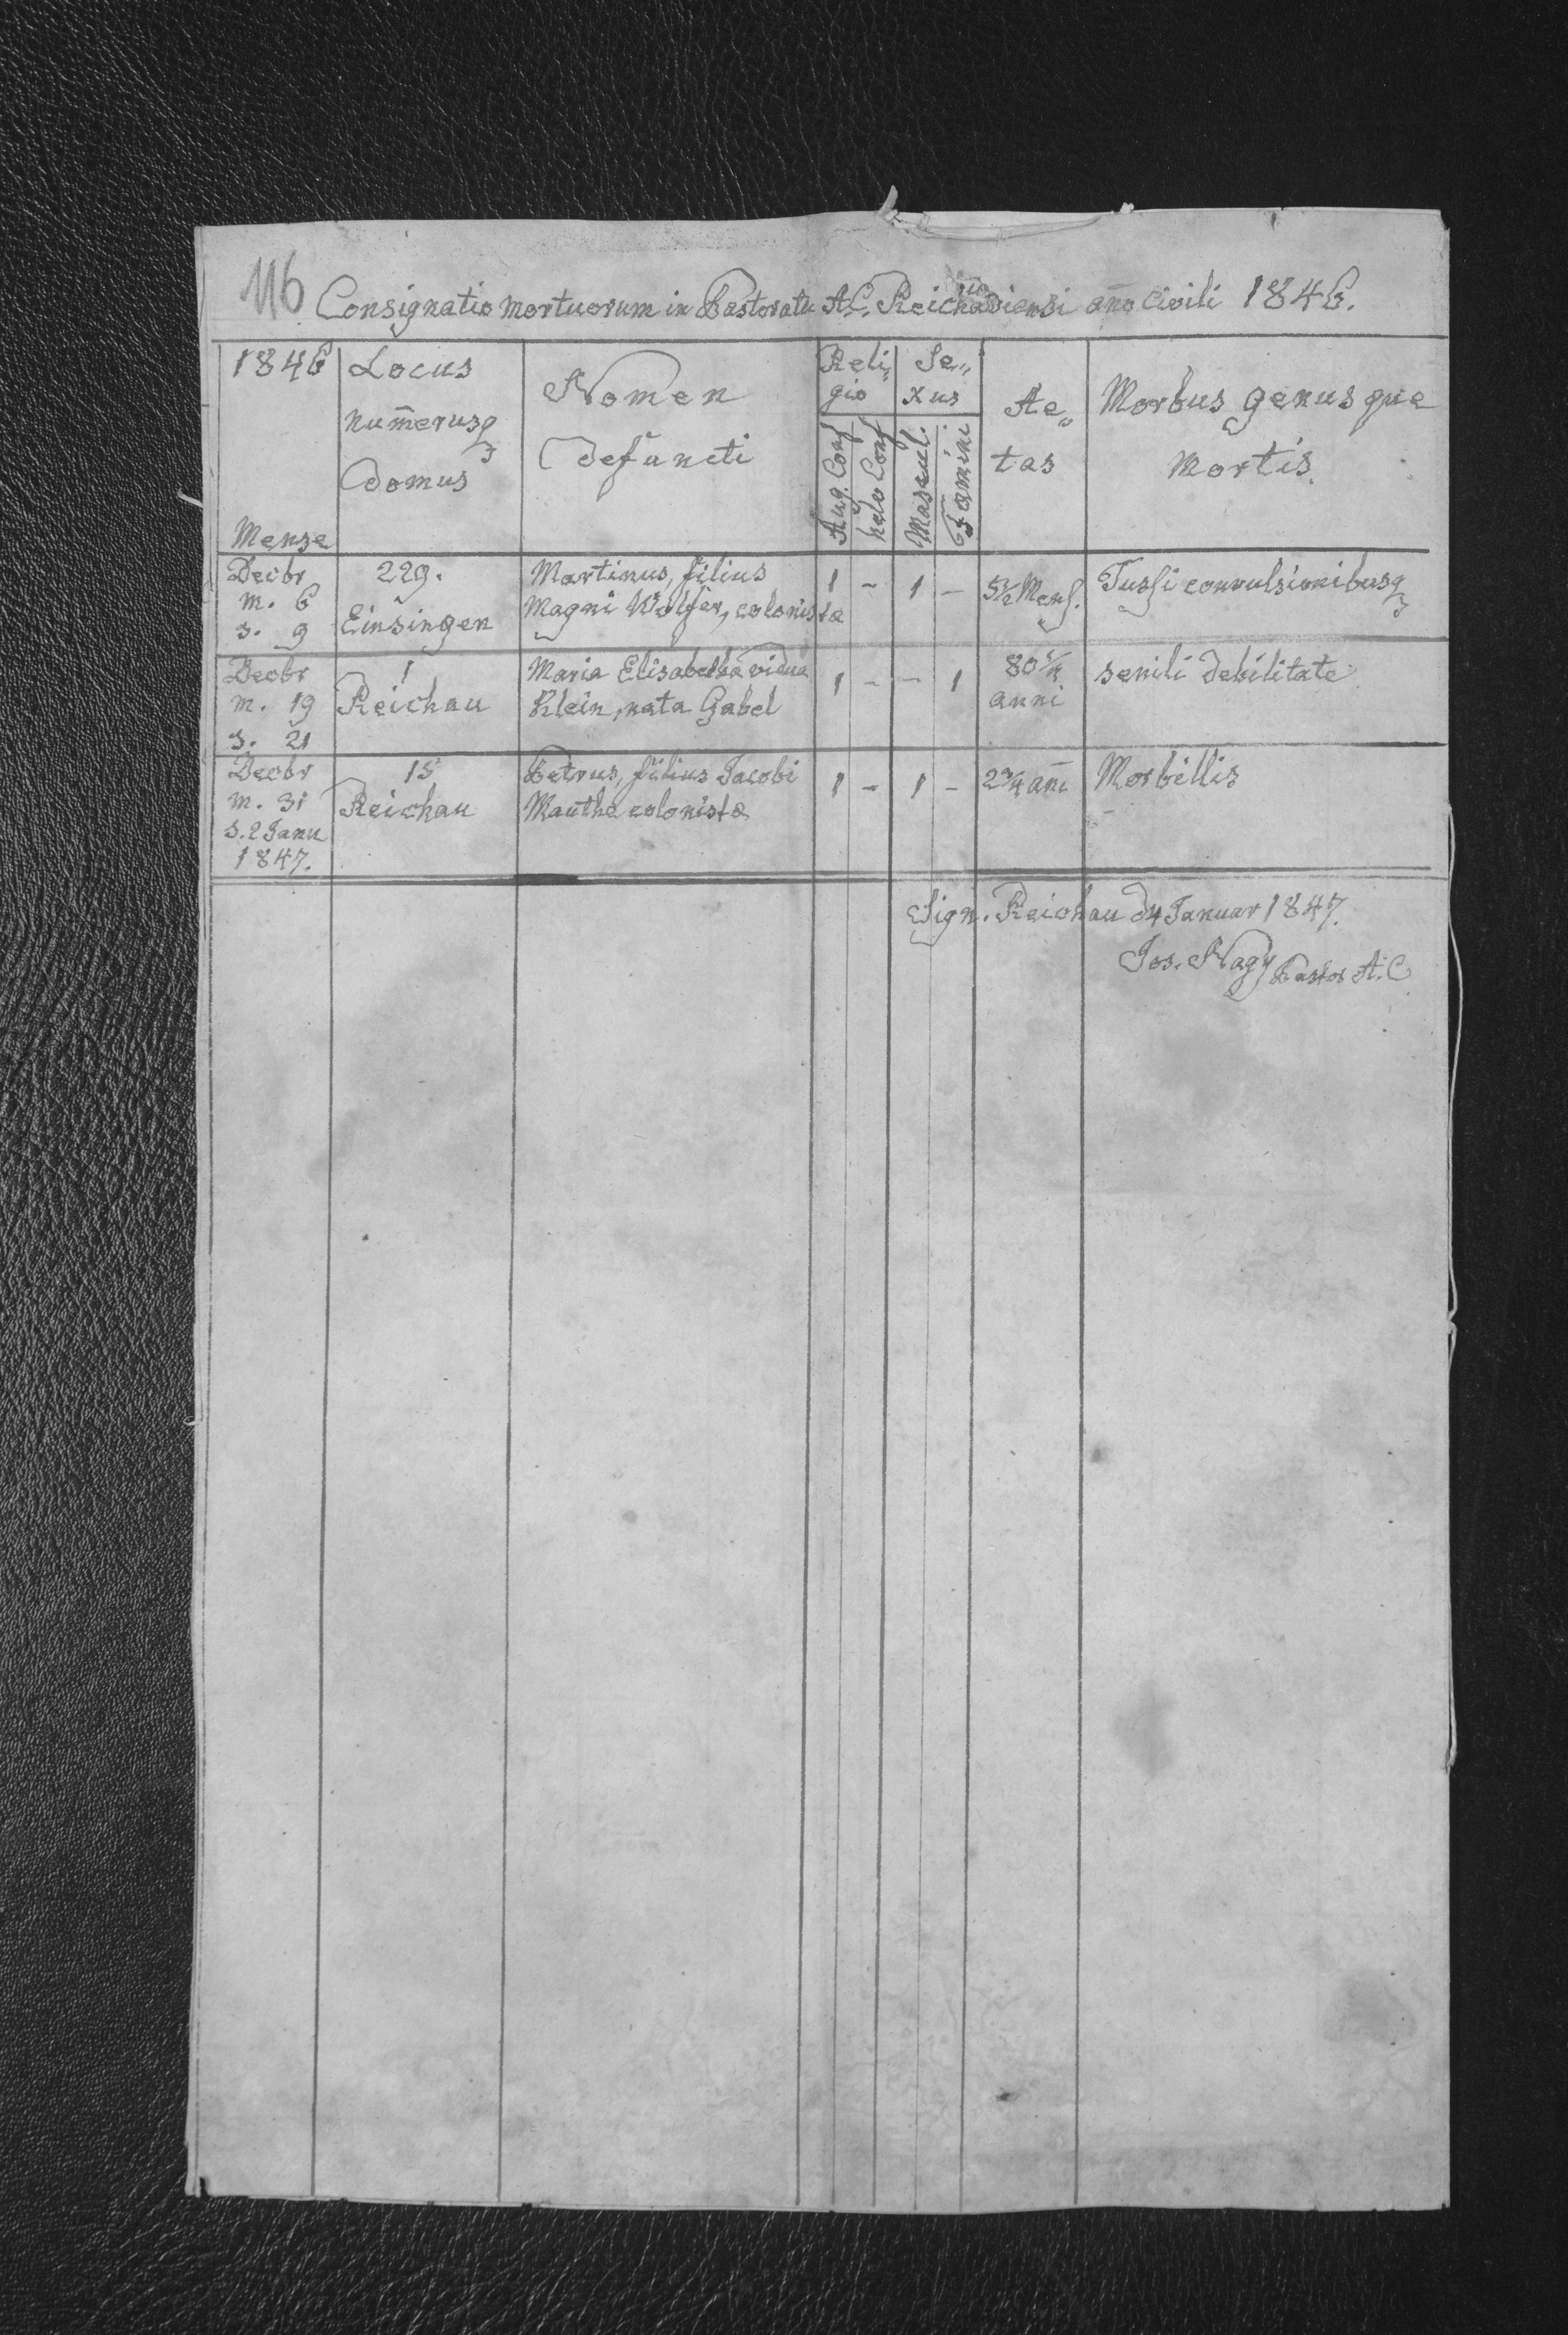 116 Consignatio mortuorum in Pastoratu A.C. Reichaviensi año civili 1846.
1846 Locus numerusq domus
Mense
Nomen
defuncti
Religio
Aug. Conf
helv Conf
Sexus
Mascul.
Fæmini
Ae„
tas
Morbus genusque
Mortis.
Decbr
m. 6
s. 9
229.
Einsingen
Martinus, filius
Magni Wolfer, colonistæ
1 - 1 -
5½ Mens.
Tussi convulsionibusq
Decbr
m. 19
s. 21
1
Reichau
Maria Elisabetha vidua
Klein, nata Gabel
1 - - 1
80
anni
senili debilitate
Decbr
m. 31
s. 2 Janu
1847.
15
Reichau
Petrus, filius Jacobi
Mauthe colonistæ
1 - 1 -
2¾ añi
Morbillis
Sign. Reichau d 4 Januar 1847.
Jos. Nagy Pastor A.C